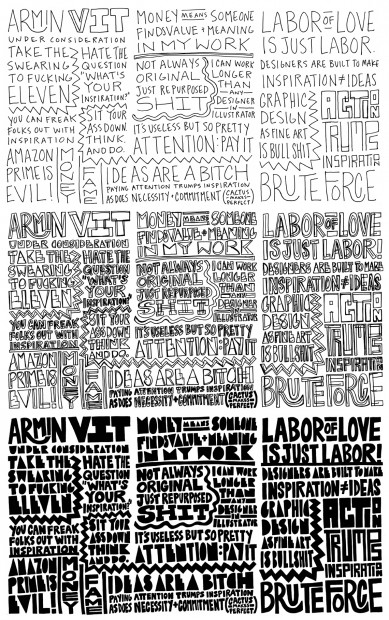 ARMIN VIT
UNDER CONSIDERATION
TAKE THE
SWEARING
TO FUCKING
ELEVEN
HATE THE
QUESTION
"WHAT'S
YOUR
INSPIRATION?"
YOU CAN FREAK
FOLKS OUT WITH
INSPIRATION
SIT YOUR
ASS DOWN
THINK
AND DO.
AMAZON
PRIME IS
EVIL!
MONEY
FAME
MONEY MEANS SOMEONE
FINDS VALUE + MEANING
IN MY WORK
NOT ALWAYS
ORIGINAL
JUST REPURPOSED
SHIT
I CAN WORK
LONGER
THAN
ANY
DESIGNER
IN
ILLUSTRATOR
ITS USELESS BUT SO PRETTY
ATTENTION: PAY IT
IDEAS ARE A BITCH
PAYING ATTENTION TRUMPS INSPIRATION
AS DOES NECESSITY + COMMITMENT (CACTUS MAKES PERFECT)
LABOR OF LOVE
IS JUST LABOR.
DESIGNERS ARE BUILT TO MAKE
INSPIRATION ≠ IDEAS
GRAPHIC
DESIGN
AS FINE ART
IS BULLSHIT
ACTION
TRUMPS
INSPIRATION
BRUTE FORCE
ARMIN VIT
UNDER CONSIDERATION
TAKE THE
SWEARING
TO FUCKING
ELEVEN
HATE THE
QUESTION
"WHAT'S
YOUR
INSPIRATION?"
YOU CAN FREAK
FOLKS OUT WITH
INSPIRATION
SIT YOUR
ASS DOWN
THINK
AND DO.
AMAZON
PRIME IS
EVIL!
MONEY
FAME
MONEY MEANS SOMEONE
FINDS VALUE + MEANING
IN MY WORK
NOT ALWAYS
ORIGINAL
JUST REPURPOSED
SHIT
I CAN WORK
LONGER
THAN
ANY
DESIGNER
IN
ILLUSTRATOR
ITS USELESS BUT SO PRETTY
ATTENTION: PAY IT
IDEAS ARE A BITCH
PAYING ATTENTION TRUMPS INSPIRATION
AS DOES NECESSITY + COMMITMENT (CACTUS MAKES PERFECT)
LABOR OF LOVE
IS JUST LABOR!
DESIGNERS ARE BUILT TO MAKE
INSPIRATION ≠ IDEAS
GRAPHIC
DESIGN
AS FINE ART
IS BULLSHIT
ACTION
TRUMPS
INSPIRATION
BRUTE FORCE
ARMIN VIT
UNDER CONSIDERATION
TAKE THE
SWEARING
TO FUCKING
ELEVEN
HATE THE
QUESTION
"WHAT'S
YOUR
INSPIRATION?"
YOU CAN FREAK
FOLKS OUT WITH
INSPIRATION
SIT YOUR
ASS DOWN
THINK
AND DO.
AMAZON
PRIME IS
EVIL!
MONEY
FAME
MONEY MEANS SOMEONE
FINDS VALUE + MEANING
IN MY WORK
NOT ALWAYS
ORIGINAL
JUST REPURPOSED
SHIT
I CAN WORK
LONGER
THAN
ANY
DESIGNER
IN
ILLUSTRATOR
ITS USELESS BUT SO PRETTY
ATTENTION: PAY IT
IDEAS ARE A BITCH
PAYING ATTENTION TRUMPS INSPIRATION
AS DOES NECESSITY + COMMITMENT (CACTUS MAKES PERFECT)
LABOR OF LOVE
IS JUST LABOR!
DESIGNERS ARE BUILT TO MAKE
INSPIRATION ≠ IDEAS
GRAPHIC
DESIGN
AS FINE ART
IS BULLSHIT
ACTION
TRUMPS
INSPIRATION
BRUTE FORCE